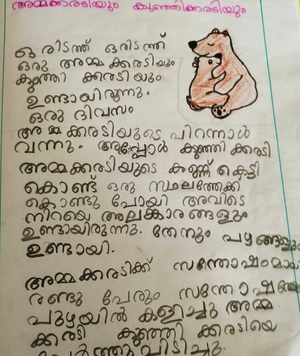 അമ്മക്കരടിയും കുഞ്ഞിക്കരടിയും
ഒരിടത്ത് ഒരിടത്ത്
ഒരു അമ്മക്കരടിയും
കുഞ്ഞി ക്കരടിയും
ഉണ്ടായിരുന്നു.
ഒരു ദിവസം
അമ്മക്കരടിയുടെ പിറന്നാൾ
വന്നു. അപ്പോൾ കുഞ്ഞി ക്കരടി
അമ്മക്കരടിയുടെ കണ്ണ് കെട്ടി
കൊണ്ട് ഒരു സ്ഥലത്തേക്ക്
കൊണ്ടു പോയി അവിടെ
നിറയെ അലങ്കാരങ്ങളും
ഉണ്ടായിരുന്നു. തേനും പഴങ്ങളും
ഉണ്ടായി.
അമ്മക്കരടിക്ക് സന്തോഷമായി
രണ്ടു പേരും
പുഴയിൽ കളിച്ചു അമ്മ
കരടി കുഞ്ഞി ക്കരടിയെ